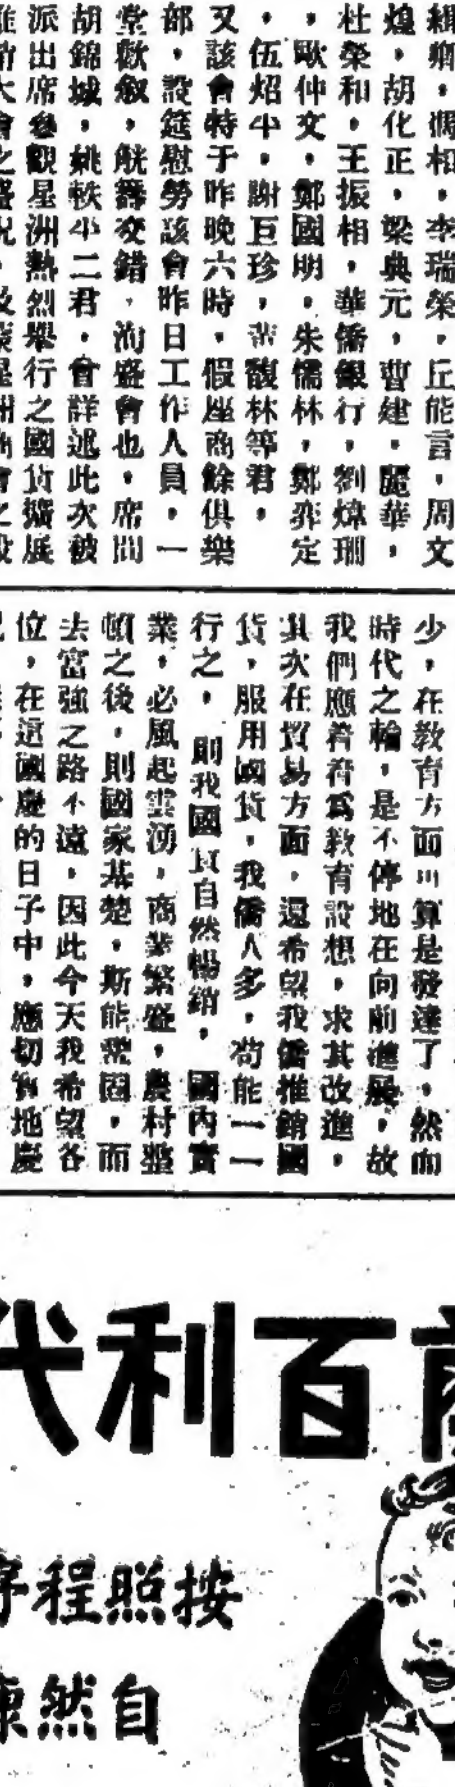 緝卿，馮相，李瑞榮，丘能言，周文
煌，胡化正，梁典元，曹建，麗華，
杜榮和，王振相，華僑銀行，劉煒瑚
，歐仲文，鄭國明，朱儒林，鄭弈定
，伍炤中，謝巨珍，馥林等君，
又該會特于昨晚六時，假座商餘俱樂
部，設筵慰勞該會昨日工作人員，一
堂歡叙，觥籌交錯，洵盛會也，席間
胡錦城，姚軼小二君，會詳述此次被
派出席參觀星洲熱烈舉行之國貨擴展
大會之盛況，星洲商會之設
少，在教育方面算是發達了，然而
時代之輪，是不停地在向前進展，故
我們應着着爲敎育設想，求其改進，
其次在貿易方面，還希望我僑推銷國
貨，服用國貨，我僑人多，苟能一一
行之，則我國貨自然暢銷，國內實
業，必風起雲湧，商業繁盛，農村整
頓之後，則國家基楚，斯能鞏固，而
去富強之路不遠，因此今天我希望各
位，在這國慶的日子中，應切實地慶
百利代
按照程序
自然康